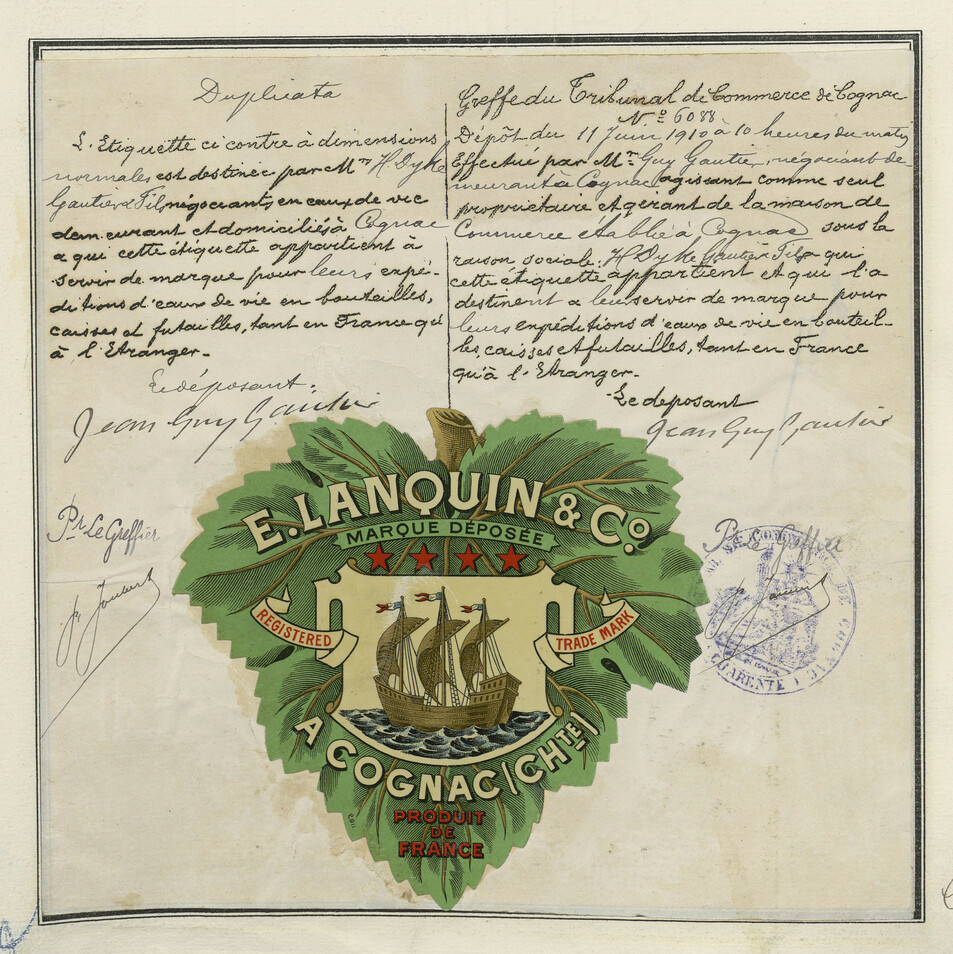 Duplicata
L'Etiquette ci contre à dimensions
normales est destinée par Mrs H. Dyke
Gautier & Fils négociants en eaux de vie
demeurant et domiciliés à Cognac
a qui cette étiquette appartient à
servir de marque pour leurs expé-
ditions d'eaux de vie en bouteilles,
caisses et futailles, tant en France qu'
à l'Etranger.-
Le déposant.
Jean Guy Gautier
Pr Le Greffier
Greffe du Tribunal de Commerce de Cognac
No 6088
Dépôt du 11 Juin 1910 à 10 heures du matin
Effectué par Mr Guy Gautier, négociant de-
meurant à Cognac agissant comme seul
propriétaire et gérant de la maison de
Commerce établie à Cognac sous la
raison sociale: H Dyke Gautier Fils qui
cette étiquette appartient et qui l'a
destinent a leur servir de marque pour
leurs expéditions d'eaux de vie en bouteil-
les, caisses et futailles, tant en France
qu'à l'Etranger.-
Le deposant
Jean Guy Gautier
Pr Le Greffier
E. LANQUIN & Co.
MARQUE DÉPOSÉE
REGISTERED
TRADE MARK
A COGNAC (CHTE)
PRODUIT
DE
FRANCE